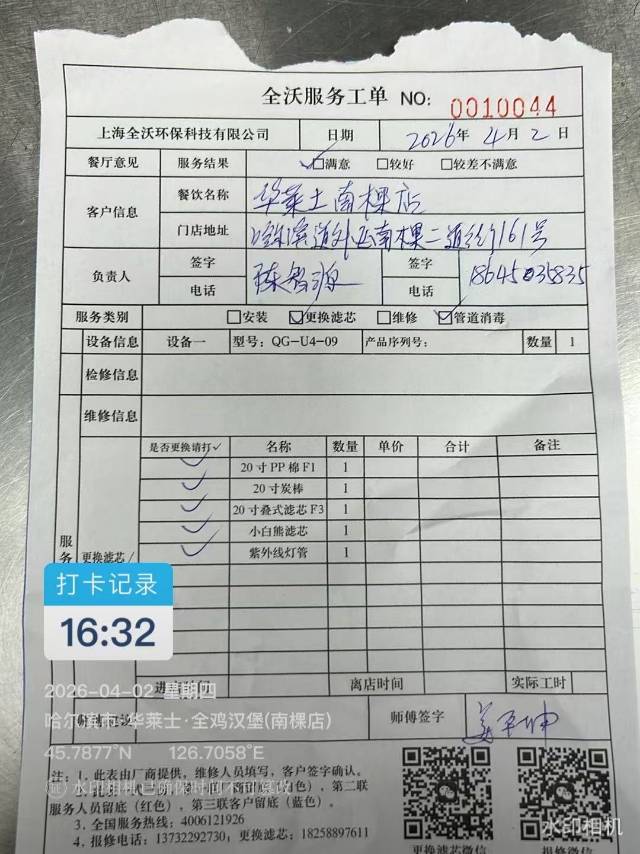 全沃服务工单 NO: 0010044
上海全沃环保科技有限公司 日期 2026年 4月 2日
餐厅意见 服务结果 ✓□满意 □较好 □较差不满意
客户信息 餐饮名称 华莱士南棵店
门店地址 哈尔滨道外区南棵二道街161号
负责人 签字 陈智源 签字
电话 电话 18645035835
服务类别 □安装 ☑更换滤芯 □维修 ☑管道消毒
设备信息 设备一 型号: QG-U4-09 产品序列号: 数量 1
检修信息
维修信息
是否更换请打✓ 名称 数量 单价 合计 备注
✓ 20寸PP棉F1 1
✓ 20寸炭棒 1
✓ 20寸叠式滤芯F3 1
✓ 小白熊滤芯 1
✓ 紫外线灯管 1
服务
更换滤芯/
打卡记录
16:32
离店时间 实际工时
2026-04-02 星期四
哈尔滨市·华莱士·全鸡汉堡(南棵店)
师傅签字
45.7877°N 126.7058°E
注: 1. 此表由厂商提供, 维修人员填写, 客户签字确认。
水印相机已确保时间不可篡改
第二联
服务人员留底(红色)、第三联客户留底(蓝色)。
3. 全国服务热线: 4006121926
4. 报修电话: 13732292730; 更换滤芯: 18258897611
更换滤芯微信 报修微信
水印相机